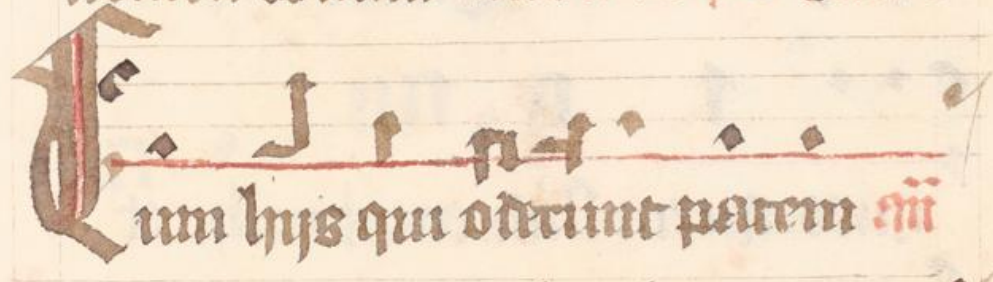 Cum hijs qui oderunt pacem